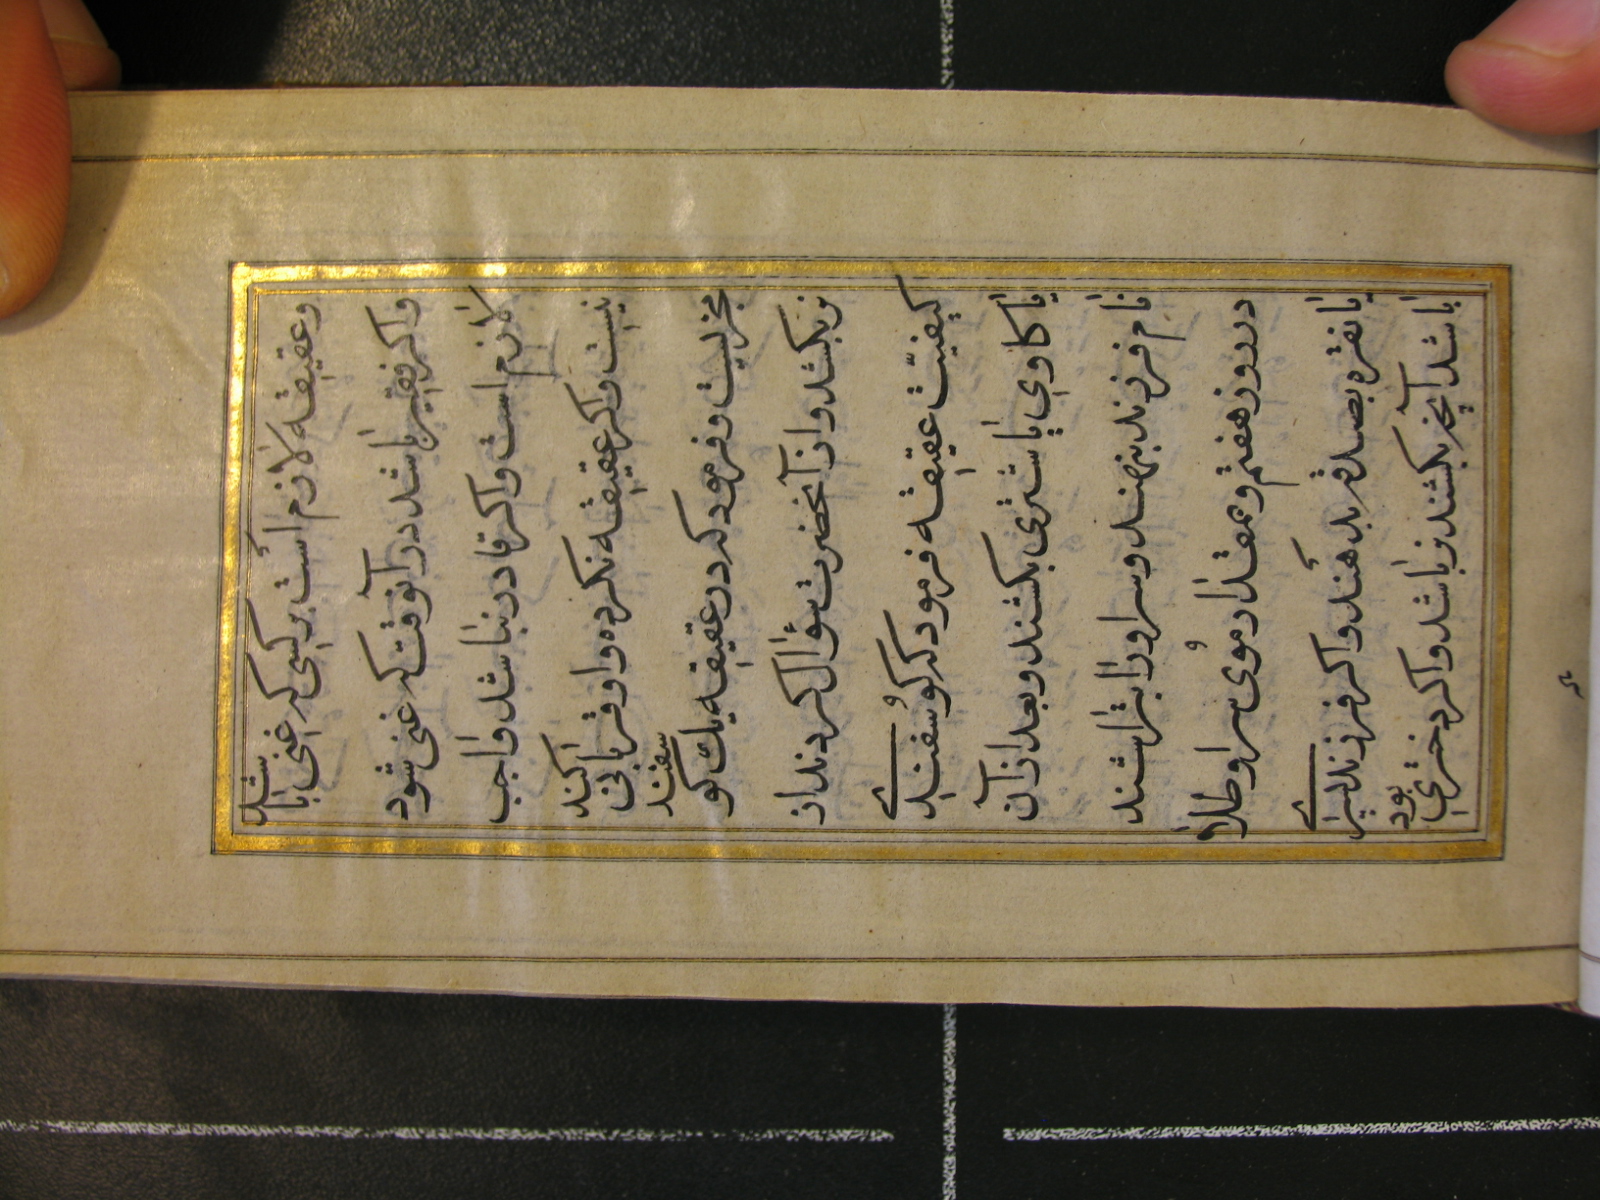 وعقیقه لازم است بر کسی که غنی باشد
واکر فقیر باشد در آنوقت که غنی شود
لازم است واکر قادر نباشد واجب
نیست واکر عقیقه نکرده و او قربانی کند
مجزیست وفرمود که در عقیقه یك کوسفند
نر بکشد واز آنحضرت سؤال کردند از
کیفیّت عقیقه فرمود که کوُسفندے
یا کاوی یا شتری بکشند وبعد از آن
نام فرزند بنهند وسر او را بتراشند
در روز هفتم وبمقدار موُی سر او طلا
یا نقره بصدقه بدهَند واکر فرزند پسرے
باشد آنچه بکشند نر باشد واکر دختری بود